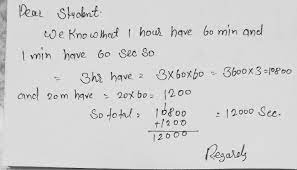 Dear Student.
We Know that 1 hour have 60 min and
1 min have 60 Sec So
= 3hr have = 3×60×60 = 3600×3=10800
and 20m have = 20×60 = 1200
So total = 10800 = 12000 Sec.
+1200
12000
Regards